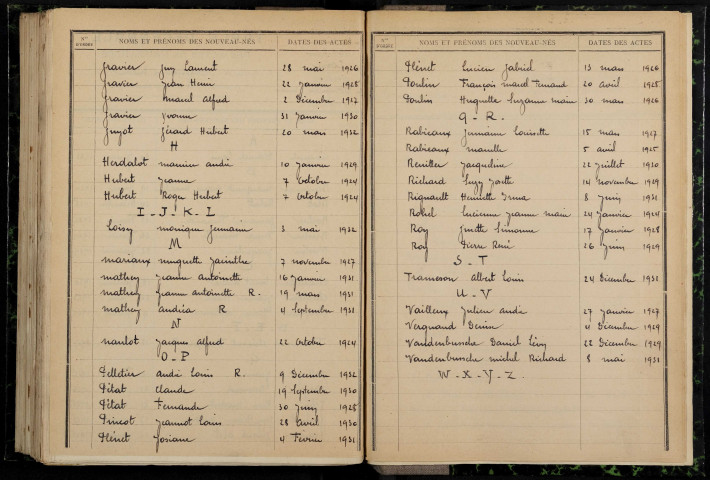 Nos D'ORDRE NOMS ET PRÉNOMS DES NOUVEAU-NÉS DATES DES ACTES
Gravier Guy Laurent 28 mai 1926
Gravier Jean Henri 22 Janvier 1928
Gravier Marcel Alfred 2 Décembre 1927
Gravier Yvonne 31 Janvier 1930
Guyot Gérard Hubert 20 mars 1932
H
Herdalot Maurice André 10 Janvier 1929
Hubert Jeanne 7 Octobre 1924
Hubert Roger Hubert 7 Octobre 1924
I - J - K - L
Loisy Monique Germaine 3 mai 1932
M
Mariaux Huguette Jacinthe 7 novembre 1927
Mathey Jeanne Antoinette 16 Janvier 1931
Mathey Jeanne Antoinette R. 19 mars 1931
Mathey Andréa R 4 Septembre 1931
N
Naulot Jacques Alfred 22 Octobre 1924
O - P
Pelletier André Louis R. 9 Décembre 1932
Pétat Claude 19 Septembre 1930
Pétat Fernande 30 Juin 1928
Pincot Jeannot Louis 28 Avril 1930
Plénet Josiane 4 Février 1931
Nos D'ORDRE NOMS ET PRÉNOMS DES NOUVEAU-NÉS DATES DES ACTES
Plénet Lucien Gabriel 13 mars 1926
Poulin François Marcel Fernand 20 avril 1928
Poulin Huguette Suzanne Marie 30 mars 1926
Q - R.
Rabieaux Germaine Louisette 15 mars 1927
Rabieaux Marcelle 5 avril 1925
Jacqueline 22 Juillet 1930
Richard Suzy 14 novembre 1929
Rignault Henriette Irma 8 Juin 1931
Robel Lucienne Jeanne Marie 24 Janvier 1924
Roy Ginette Simonne 17 Janvier 1928
Roy Pierre René 26 Juin 1929
S - T
Trameson Albert Louis 24 Décembre 1931
U - V
Vailleux Julien André 27 Janvier 1927
Vergnaud Denise 4 Décembre 1929
Vandenbussche Daniel Léon 22 Décembre 1929
Vandenbussche Michel Richard 8 mai 1931
W - X - Y - Z